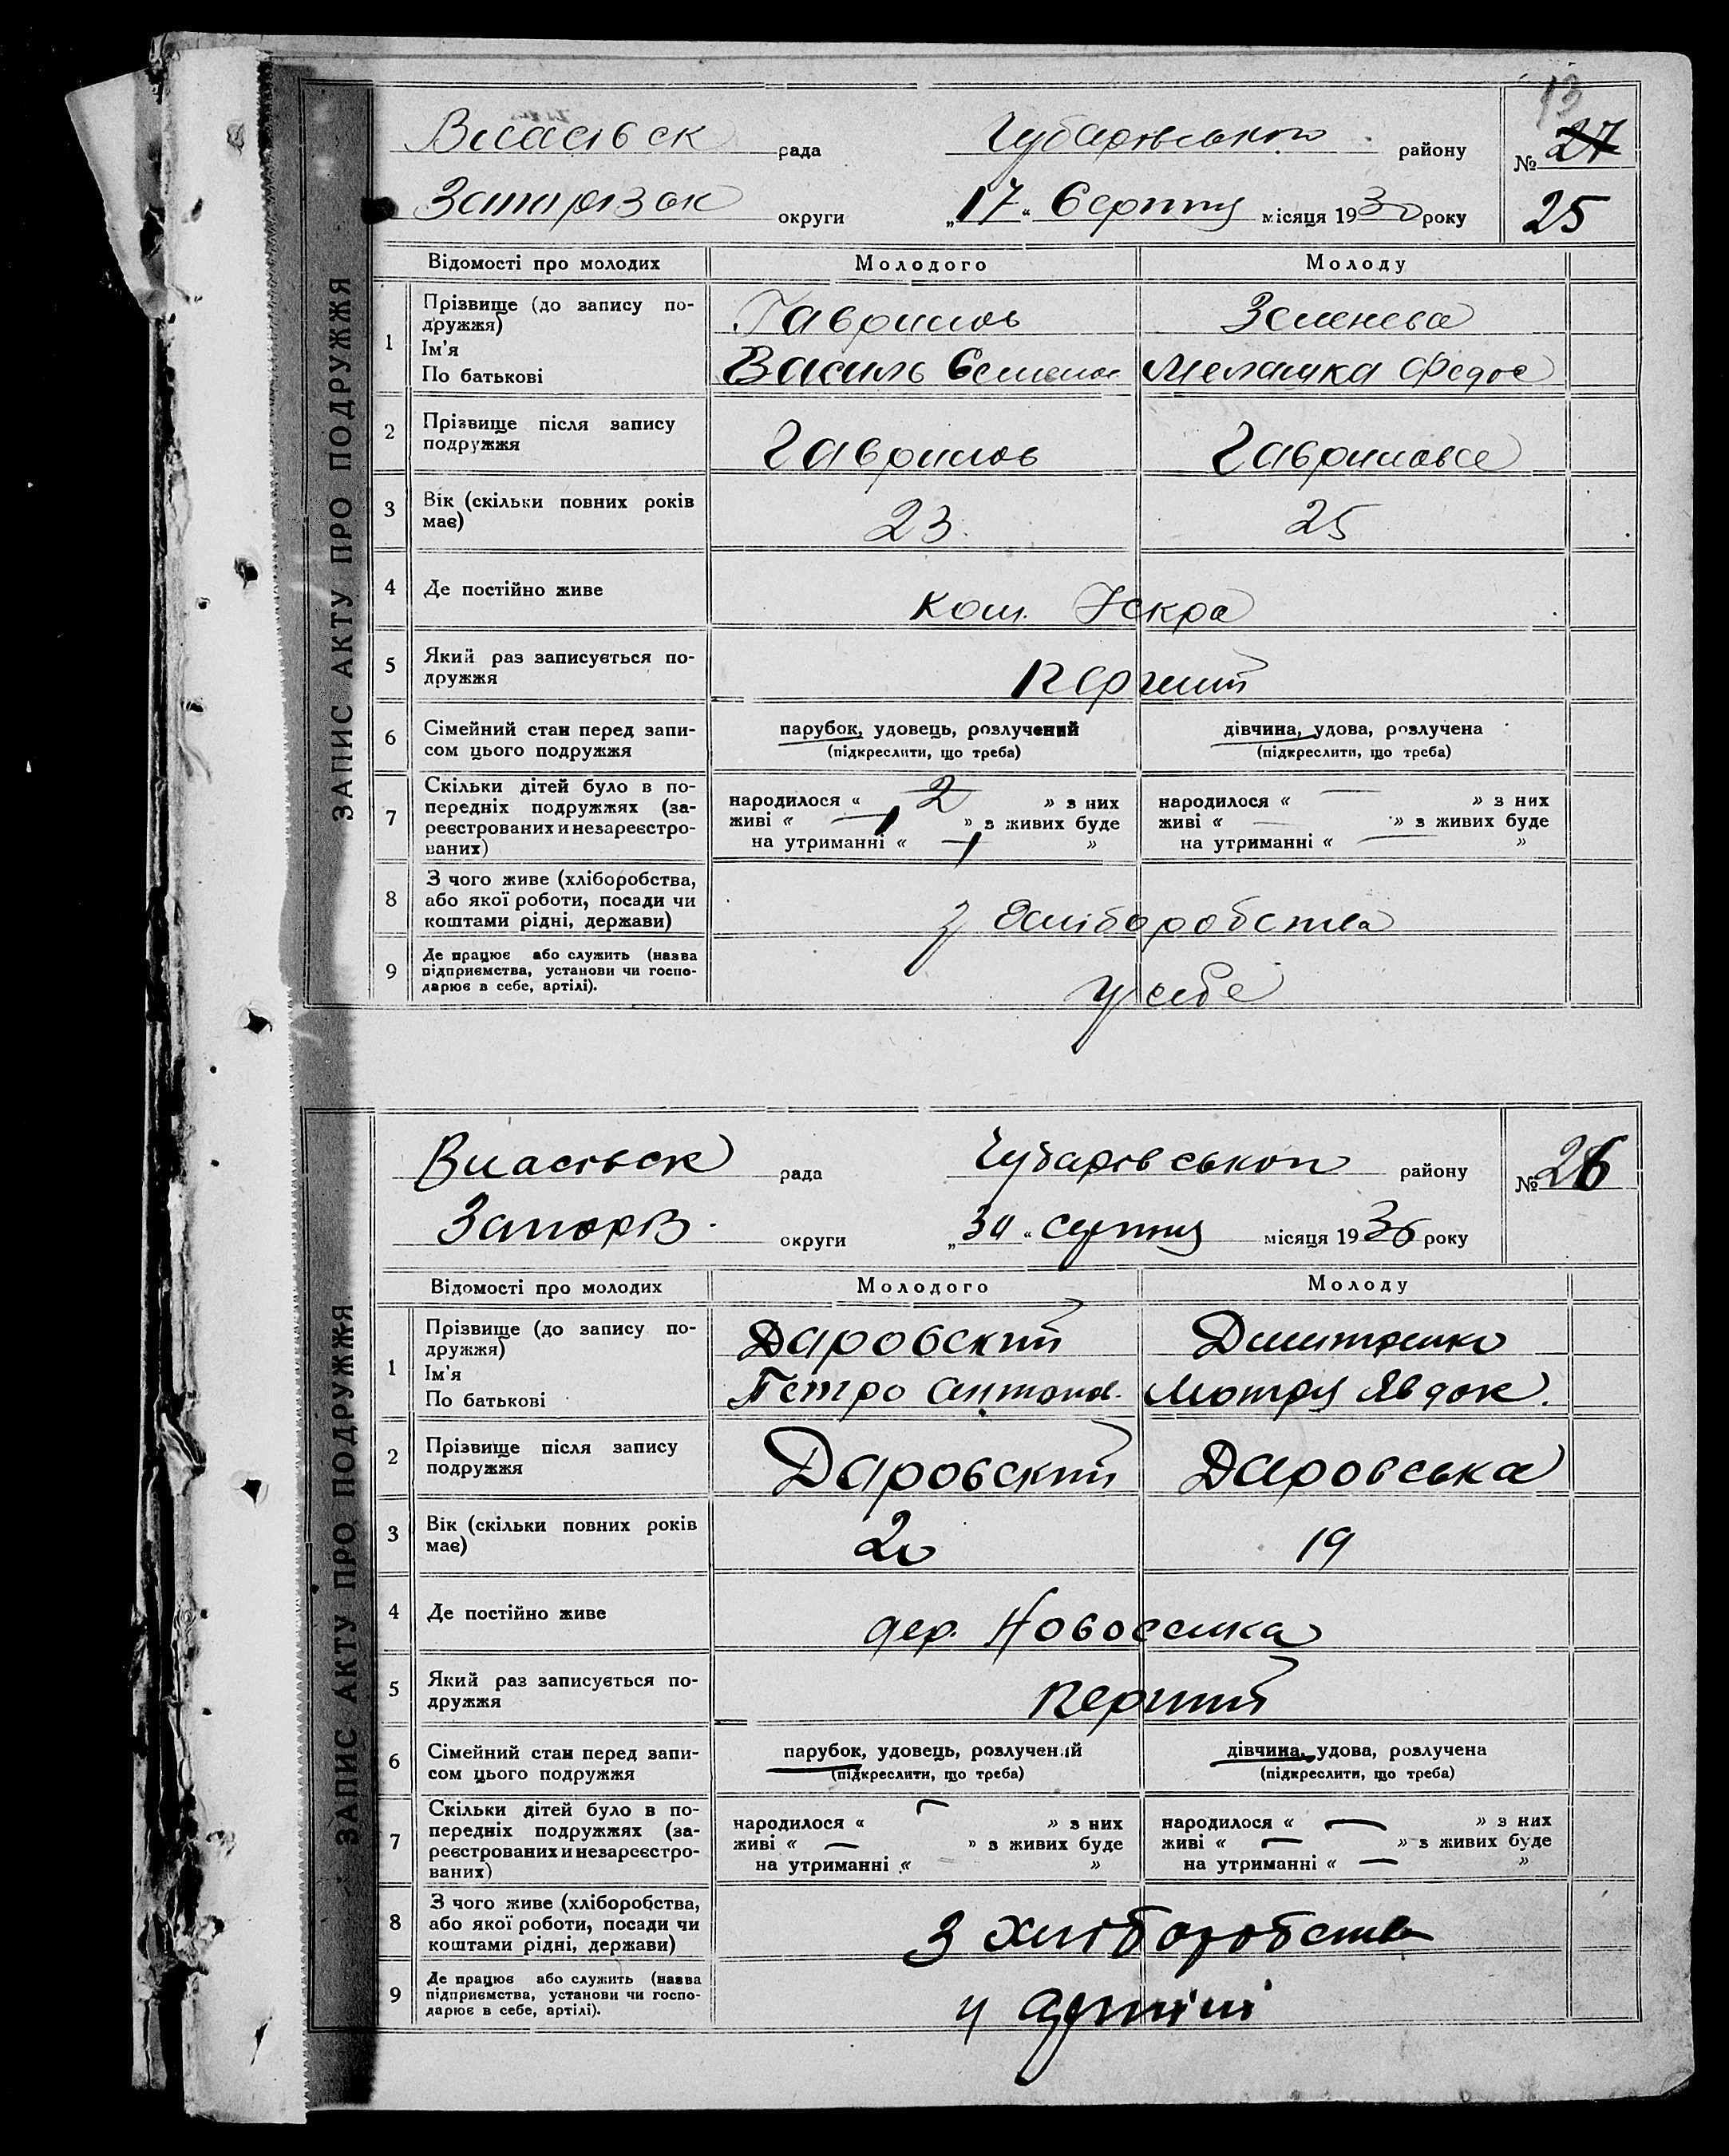 13
Власівск рада Чубарівського району № 27
Запорізок округи „17“ Серпня місяця 1930 року 25
ЗАПИС АКТУ ПРО ПОДРУЖЖЯ
Відомості про молодих Молодого Молоду
1 Прізвище (до запису по-
дружжя) Гаврилов Зеленева
Ім'я
По батькові Василь Семенов Мелашка Федос
2 Прізвище після запису
подружжя Гаврилов Гаврилова
3 Вік (скільки повних років
має) 23 25
4 Де постійно живе ком. Іскра
5 Який раз записується по-
дружжя перший
6 Сімейний стан перед запи-
сом цього подружжя
парубок, удовець, розлучений дівчина, удова, розлучена
(підкреслити, що треба) (підкреслити, що треба)
7 Скільки дітей було в по-
передніх подружжях (за-
реєстрованих и незареєстро-
ваних)
народилося « 2 » з них народилося « — » з них
живі « 1 » з живих буде живі « — » з живих буде
на утриманні « 1 » на утриманні « — »
8 З чого живе (хліборобства,
або якої роботи, посади чи
коштами рідні, держави) з хліборобства
9 Де працює або служить (назва
підприємства, установи чи госпо-
дарює в себе, артілі). у себе
Власівск рада Чубарівського району № 26
Запоріз. округи „30“ серпня місяця 1930 року
ЗАПИС АКТУ ПРО ПОДРУЖЖЯ
Відомості про молодих Молодого Молоду
1 Прізвище (до запису по-
дружжя) Даровский Дмитренко
Ім'я
По батькові Петро Антонов. Мотря Явдок.
2 Прізвище після запису
подружжя Даровский Даровська
3 Вік (скільки повних років
має) 20 19
4 Де постійно живе дер. Новоселка
5 Який раз записується по-
дружжя перший
6 Сімейний стан перед запи-
сом цього подружжя
парубок, удовець, розлучений дівчина, удова, розлучена
(підкреслити, що треба) (підкреслити, що треба)
7 Скільки дітей було в по-
передніх подружжях (за-
реєстрованих и незареєстро-
ваних)
народилося « — » з них народилося « — » з них
живі « — » з живих буде живі « — » з живих буде
на утриманні « » на утриманні « — »
8 З чого живе (хліборобства,
або якої роботи, посади чи
коштами рідні, держави) З хліборобства
9 Де працює або служить (назва
підприємства, установи чи госпо-
дарює в себе, артілі). у артілі